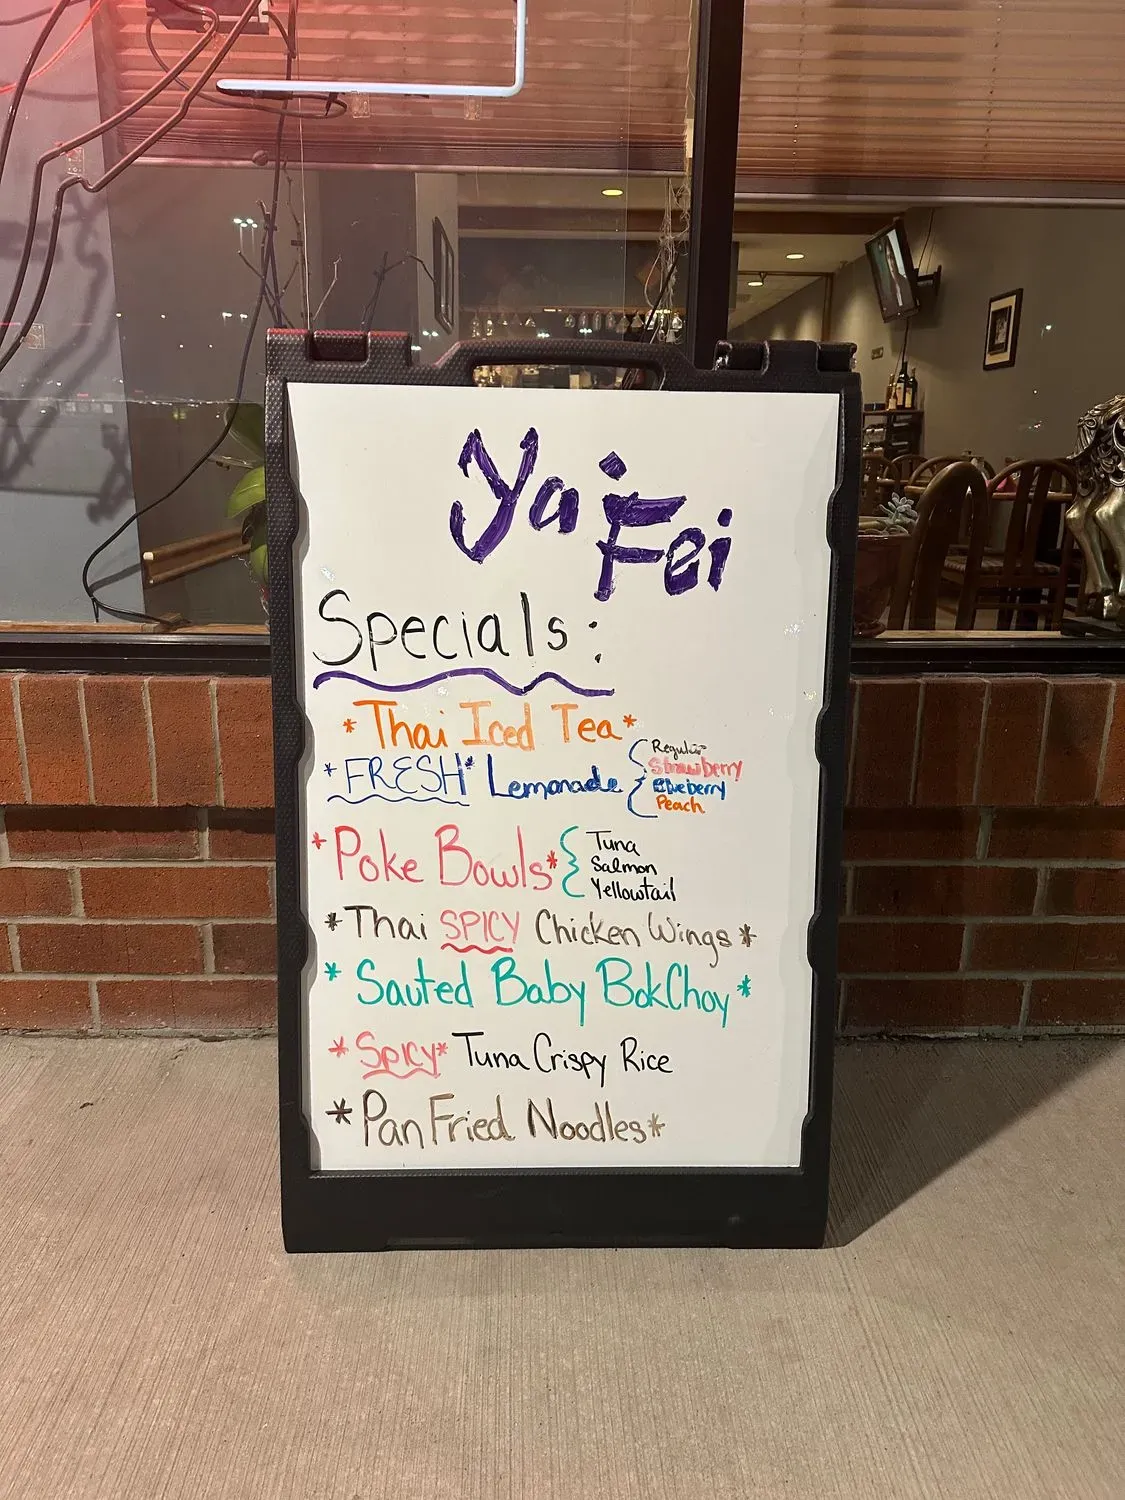 Ya
Fei
Specials:
*Thai Iced Tea*
*FRESH* Lemonade { Regular
Strawberry
Blueberry
Peach
*Poke Bowls* { Tuna
Salmon
Yellowtail
*Thai SPICY Chicken Wings*
*Sauted Baby BokChoy*
*Spicy* Tuna Crispy Rice
*Pan Fried Noodles*